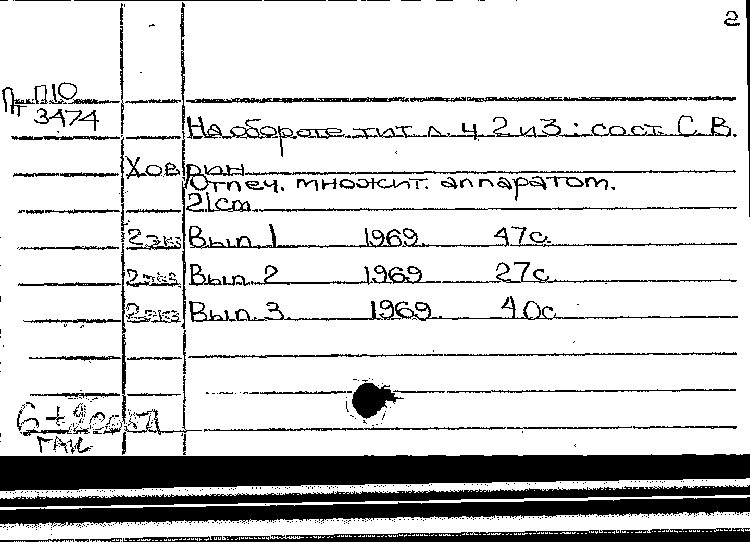 2
Пт П10
3474
На обороте тит. л. ч. 2 и 3: сост. С. В.
Ховрин
Отпеч. множит. аппаратом.
21 cm
2 экз Вып. 1 1969. 47с.
2 экз Вып. 2 1969 27с
2 экз Вып. 3. 1969. 40с
6+2